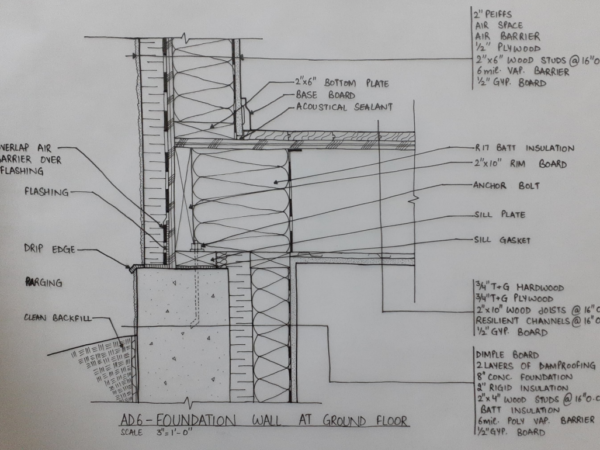 2" PEIFFS
AIR SPACE
AIR BARRIER
1/2" PLYWOOD
2"x6" WOOD STUDS @ 16"O
6 mil. VAP. BARRIER
1/2" GYP. BOARD
2"x6" BOTTOM PLATE
BASE BOARD
ACOUSTICAL SEALANT
OVERLAP AIR
BARRIER OVER
FLASHING
FLASHING
DRIP EDGE
PARGING
CLEAN BACKFILL
R17 BATT INSULATION
2"x10" RIM BOARD
ANCHOR BOLT
SILL PLATE
SILL GASKET
3/4" T+G HARDWOOD
3/4" T+G PLYWOOD
2"x10" WOOD JOISTS @ 16" O
RESILIENT CHANNELS @ 16"O
1/2" GYP. BOARD
DIMPLE BOARD
2 LAYERS OF DAMPROOFING
8" CONC. FOUNDATION
2" RIGID INSULATION
2"x4" WOOD STUDS @ 16"O.C
BATT INSULATION
6 mil. POLY VAP. BARRIER
1/2" GYP. BOARD
AD6 - FOUNDATION WALL AT GROUND FLOOR
SCALE 3"=1'-0"